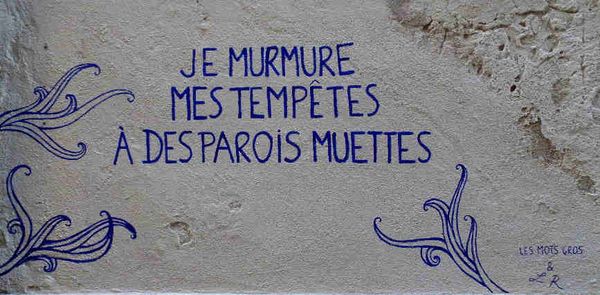 JE MURMURE
MES TEMPÊTES
À DES PAROIS MUETTES
LES MOTS GROS
&
L R